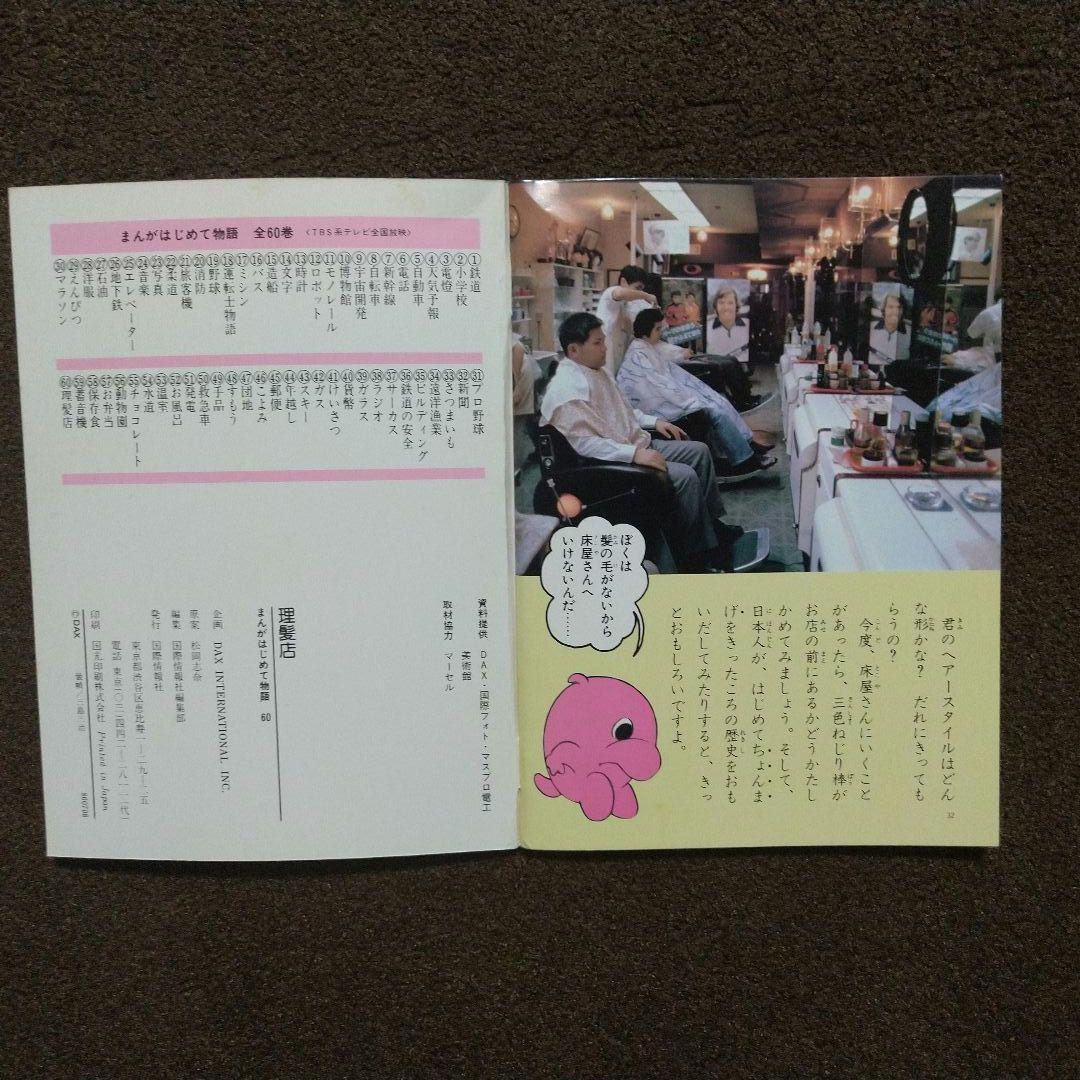 君のヘアースタイルはどん
な形かな？　だれにきっても
らうの？
今度、床屋さんにいくこと
があったら、三色ねじり棒が
お店の前にあるかどうかたし
かめてみましょう。そして、
日本人が、はじめてちょんま
げをきったころの歴史をおも
いだしてみたりすると、きっ
とおもしろいですよ。
32
ぼくは
髪の毛がないから
床屋さんへ
いけないんだ……
まんがはじめて物語　全60巻　〈TBS系テレビ全国放映〉
①鉄道
②小学校
③電燈
④天気予報
⑤自動車
⑥電話
⑦新幹線
⑧自転車
⑨宇宙開発
⑩博物館
⑪モノレール
⑫ロボット
⑬時計
⑭文字
⑮造船
⑯バス
⑰ミシン
⑱運転士物語
⑲野球
⑳消防
㉑旅客機
㉒柔道
㉓写真
㉔音楽
㉕エレベーター
㉖地下鉄
㉗石油
㉘洋服
㉙えんぴつ
㉚マラソン
㉛プロ野球
㉜新聞
㉝さつまいも
㉞遠洋漁業
㉟ビルディング
㊱鉄道の安全
㊲サーカス
㊳ラジオ
㊴ガラス
㊵貨幣
㊶けいさつ
㊷ガス
㊸スキー
㊹年越し
㊺郵便
㊻こよみ
㊼団地
㊽すもう
㊾手品
㊿救急車
51発電
52お風呂
53温室
54水道
55チョコレート
56動物園
57お弁当
58保存食
59蓄音機
60理髪店
資料提供　DAX・国際フォト・マスプロ電工
美術館
取材協力　マーセル
理髪店
まんがはじめて物語　60
企画　DAX INTERNATIONAL INC.
原案　松岡志奈
編集　国際情報社編集部
発行　国際情報社
東京都渋谷区恵比寿一－二九－二五
電話　東京－〇三－四四二－二八一一（代）
印刷　国元印刷株式会社　Printed in Japan
©DAX
800708